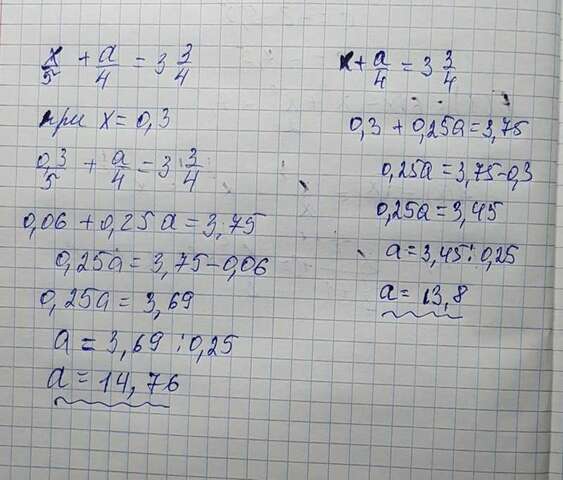 x/5 + a/4 = 3 3/4
при x = 0,3
0,3/5 + a/4 = 3 3/4
0,06 + 0,25a = 3,75
0,25a = 3,75 - 0,06
0,25a = 3,69
a = 3,69 : 0,25
a = 14,76
x + a/4 = 3 3/4
0,3 + 0,25a = 3,75
0,25a = 3,75 - 0,3
0,25a = 3,45
a = 3,45 : 0,25
a = 13,8